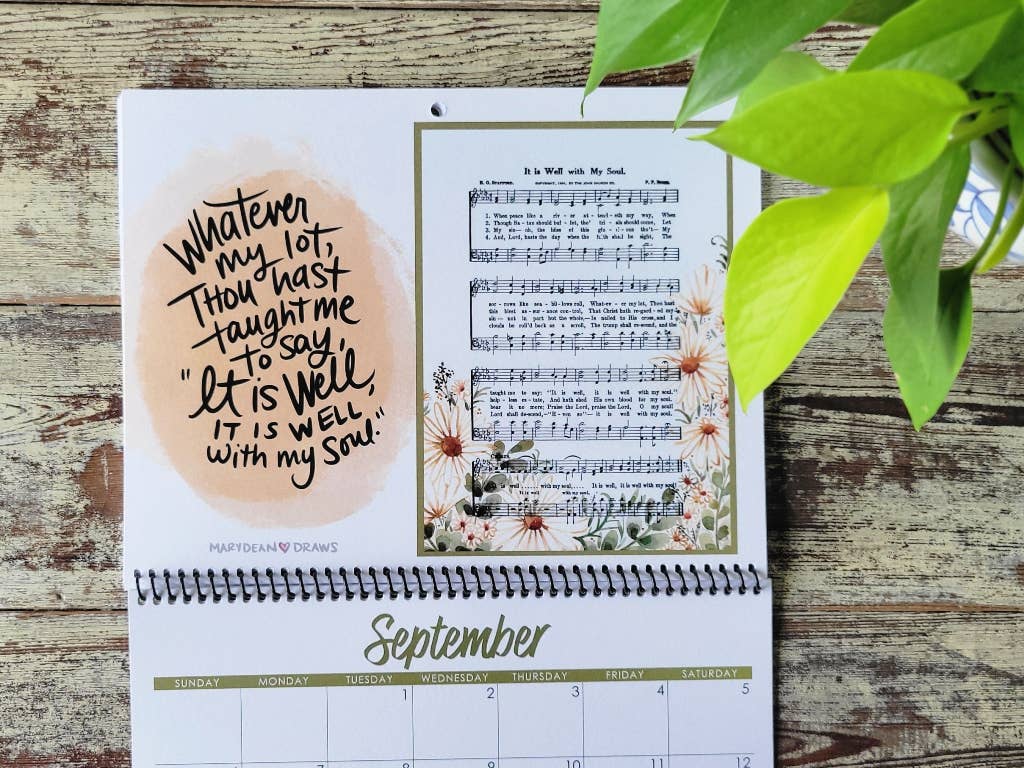 Whatever
my lot,
Thou hast
taught me
to say,
"It is Well,
IT IS WELL,
with my Soul."
MARYDEAN DRAWS
It is Well with My Soul.
1. When peace like a riv - er at - tend - eth my way, When
2. Though Sa - tan should buf - fet, tho' tri - als should come, Let
3. My sin— oh, the bliss of this glo - ri - ous tho't— My
4. And, Lord, haste the day when the faith shall be sight, The
sor - rows like sea - bil - lows roll, What - ev - er my lot, Thou hast
this blest as - sur - ance con - trol, That Christ hath re - gard - ed my
sin— not in part but the whole,— Is nailed to His cross, and I
clouds be roll'd back as a scroll, The trump shall re - sound, and the
taught me to say: "It is well, it is well with my soul."
help - less es - tate, And hath shed His own blood for my soul.
bear it no more; Praise the Lord, praise the Lord, O my soul!
Lord shall de-scend,—"E - ven so"— it is well with my soul.
is well ...... with my soul, ..... It is well, it is well with my soul!
It is well with my soul,
September
SUNDAY MONDAY TUESDAY WEDNESDAY THURSDAY FRIDAY SATURDAY
1 2 3 4 5
12